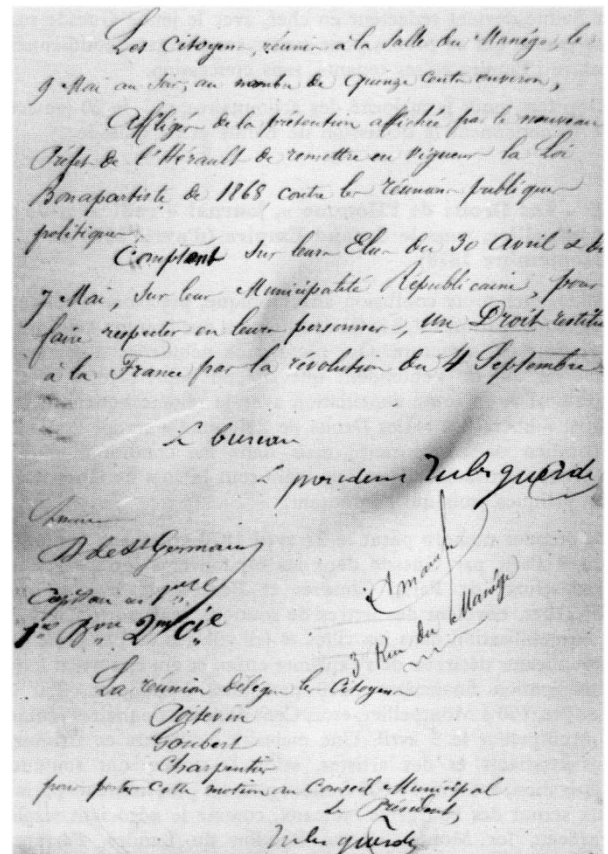 Les Citoyens, réunis à la Salle du Manége, le
9 Mai au Soir, au nombre de quinze cents environ,
Affligés de la prétention affichée par le nouveau
Préfet de l'Hérault de remettre en vigueur la Loi
Bonapartiste de 1868 contre les réunions publiques
politiques
Comptent sur leurs Elus du 30 Avril & du
7 Mai, sur leur Municipalité Républicaine, pour
faire respecter en leurs personnes, un Droit restitué
à la France par la révolution du 4 Septembre
Le bureau
Le president Jules guesde
A de St Germain
Capitaine
1er Bon 2me Cie
3 Rue du Manége
La réunion délégue les Citoyens
Poitevin
Goubert
Charpentier
pour porter cette motion au Conseil Municipal
Le Président,
Jules guesde